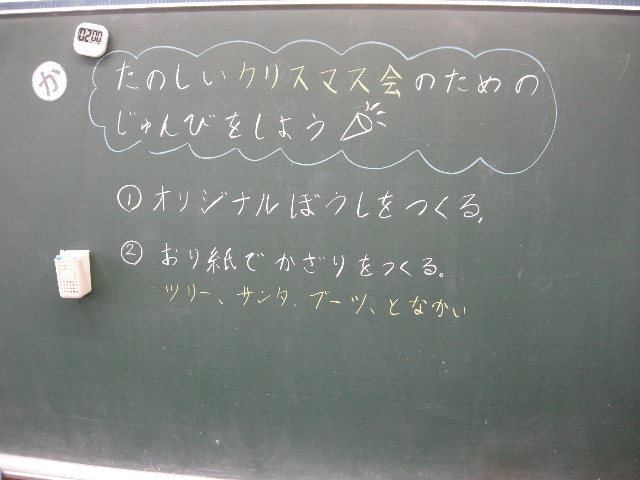 12:00
か
たのしいクリスマス会のための
じゅんびをしよう
① オリジナルぼうしをつくる。
② おり紙でかざりをつくる。
ツリー、サンタ、ブーツ、となかい